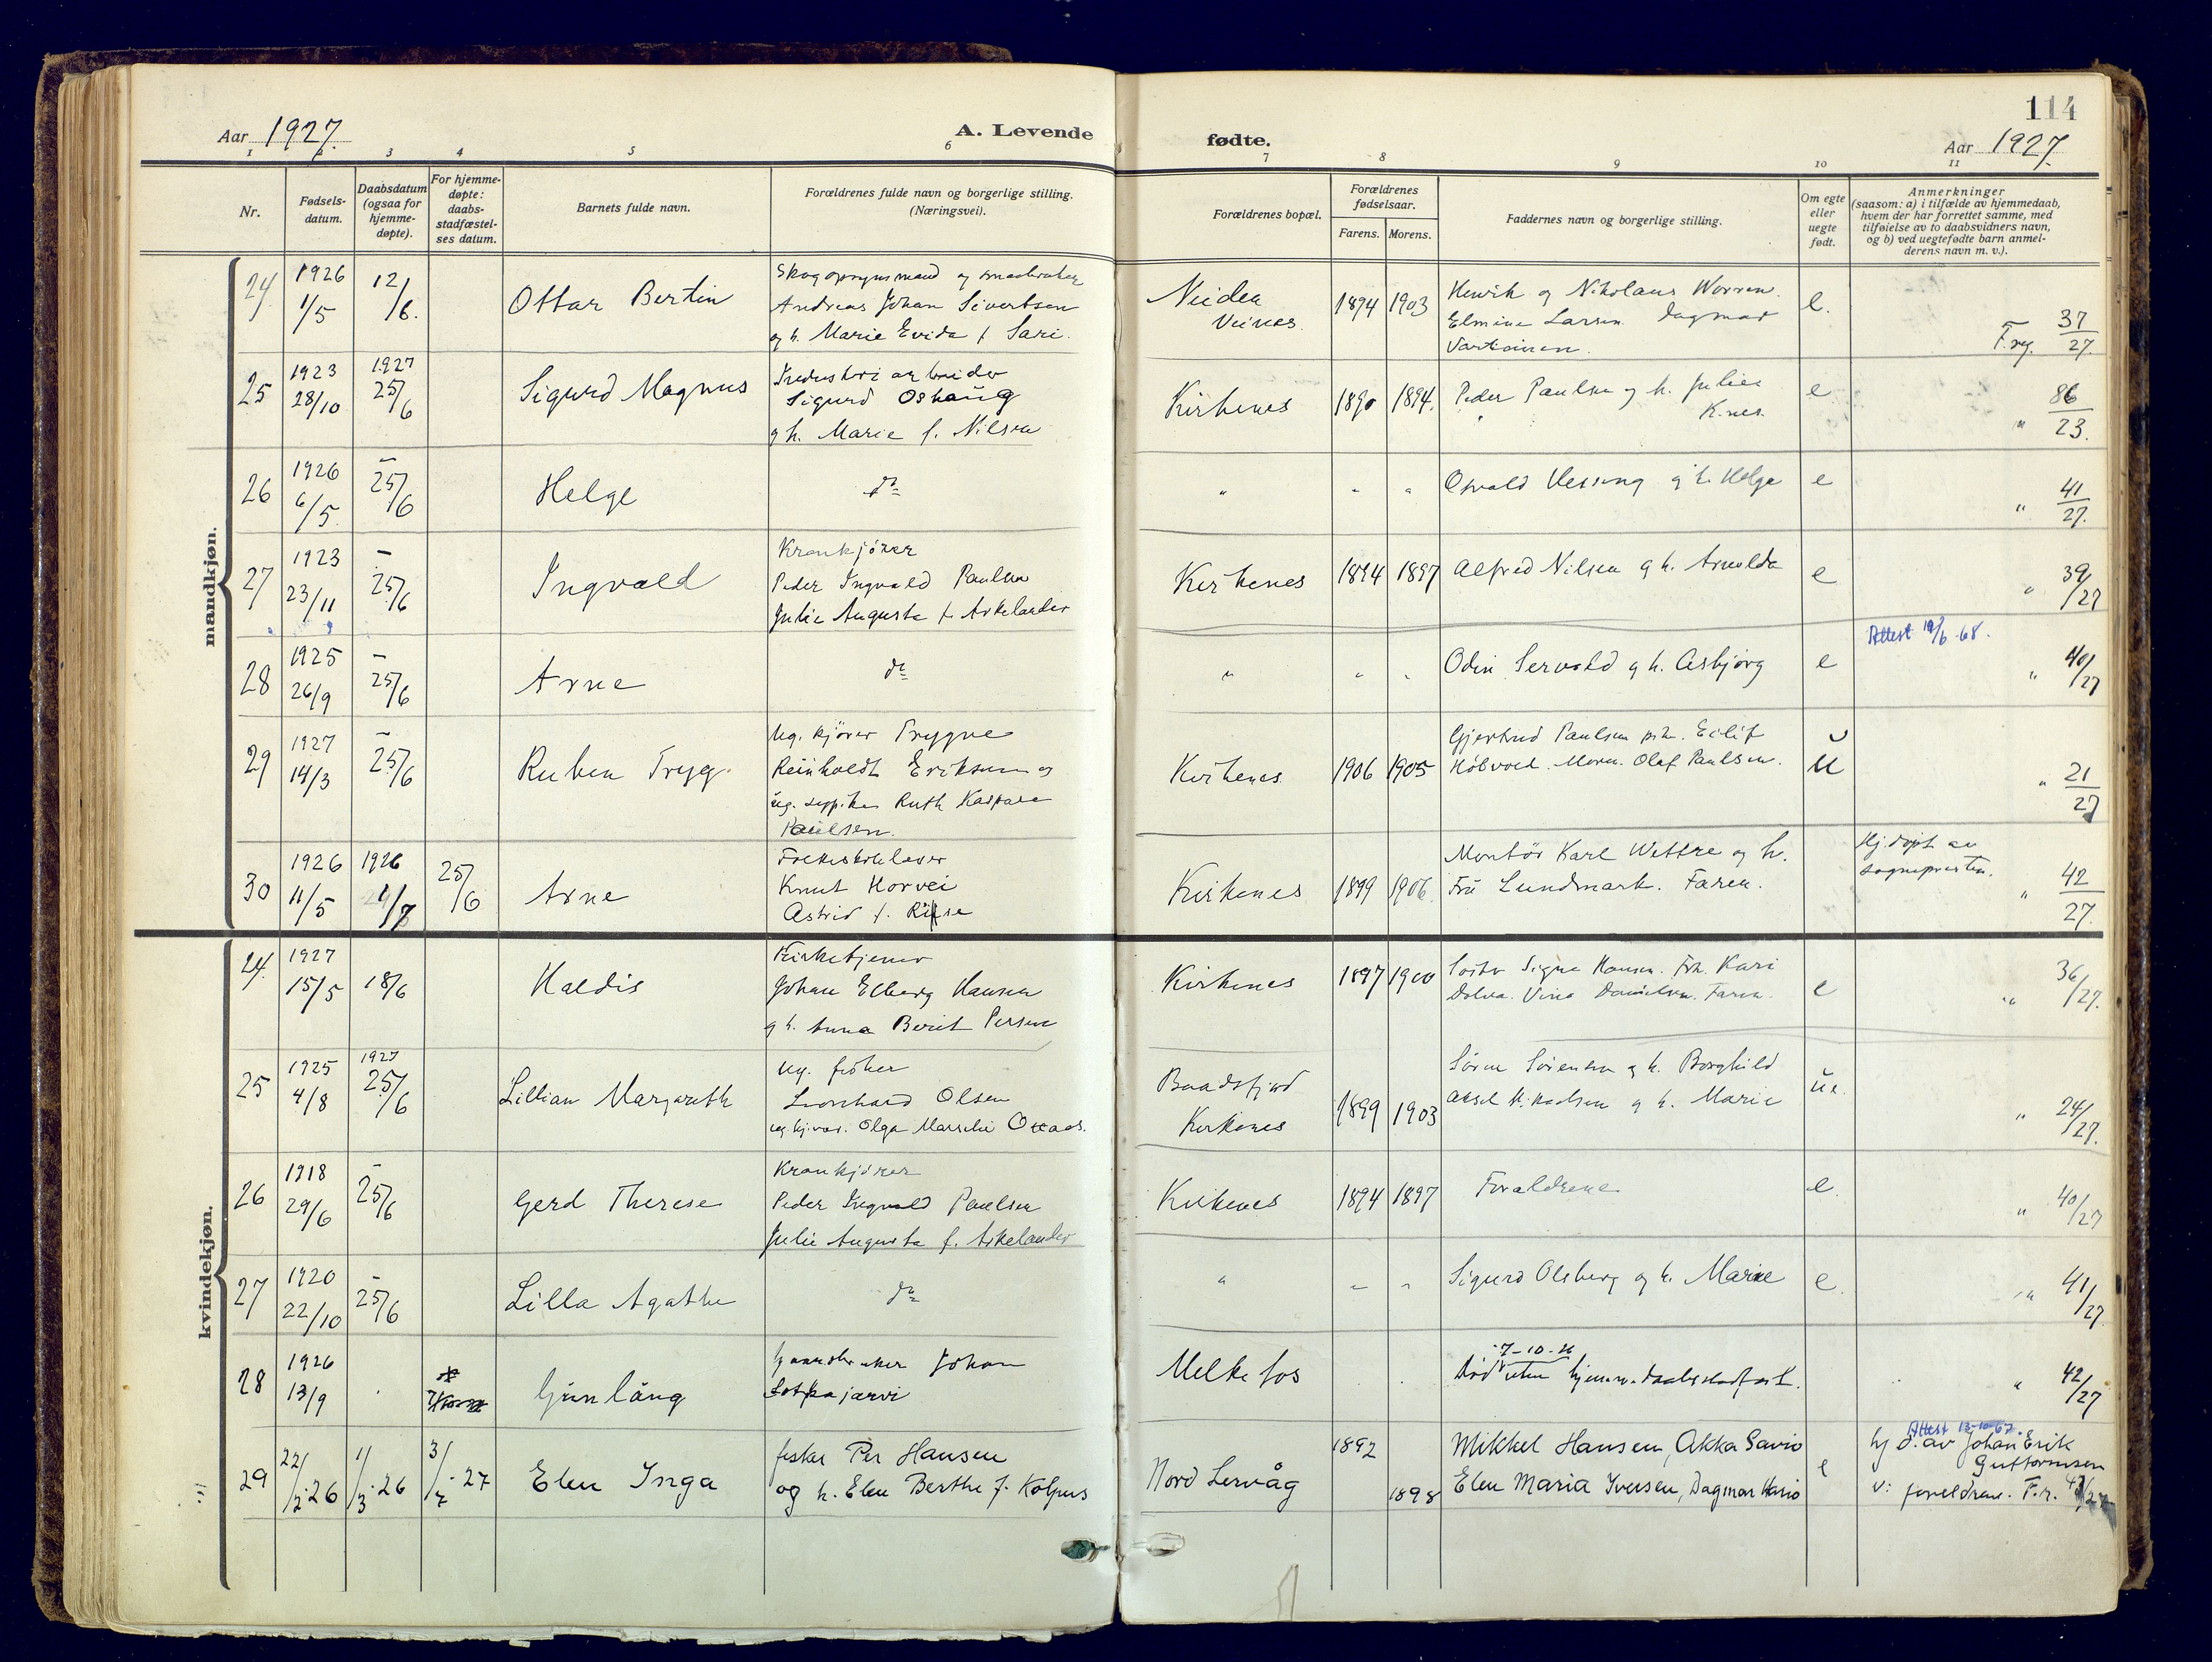 114
Aar 1927.
A. Levende
fødte.
Aar 1927.
1 2 3 4 5 6 7 8 9 10 11
Nr.
Fødsels-
datum.
Daabsdatum
(ogsaa for
hjemme-
døpte).
For hjemme-
døpte:
daabs-
stadfæstel-
ses datum.
Barnets fulde navn.
Forældrenes fulde navn og borgerlige stilling.
(Næringsvei).
Forældrenes bopæl.
Forældrenes
fødselsaar.
Farens. Morens.
Faddernes navn og borgerlige stilling.
Om egte
eller
uegte
født.
Anmerkninger
(saasom: a) i tilfælde av hjemmedaab,
hvem der har forrettet samme, med
tilføielse av to daabsvidners navn,
og b) ved uegtefødte barn anmel-
derens navn m. v.).
mandkjøn.
24 1926 1/5 12/6. Ottar Bertin
Andreas Johan Sivertsen
og h. Marie Evida f. Sari.
Neiden
1894 1903
Henrik og Nikolaus
Elmine Larsen. Dagmar
e.
F.reg. 37/27.
25 1923 28/10 1927 25/6 Sigurd Magnus
Industriarbeider
Sigurd Oshaug
g h. Marie f. Nilsen
Kirkenes 1890 1894.
Peder Paulsen og h. Julie
K.nes.
e
" 86/23.
26 1926 6/5. – 25/6 Helge
do
" " "
Osvald Hessung g h. Helga
e
" 41/27.
27 1923 23/11 – 25/6 Ingvald
Krankjörer
Peder Ingvald Paulsen
Julie Augusta f. Askelander
Kirkenes 1894 1897
Alfred Nilsen g h. Arnolda
e
" 39/27
28 1925 26/9 – 25/6 Arne
do
" " "
Odin Servold g h. Asbjörg
e
Attest 19/6-68.
" 40/27
29 1927 14/3 – 25/6 Ruben Tryg.
Ug. kjörer Trygve
Reinholdt Eriksen og
ug. Ruth Kaspara
Paulsen.
Kirkenes 1906 1905
Gjertrud Paulsen Eilif
Moren. Olaf Paulsen.
U
" 21/27
30 1926 11/5 1926 1/7 25/6 Arne
Folkeskolelærer
Knut Horvei
Astrid f. Riise
Kirkenes 1899 1906.
Montör Karl Wettre og h.
Fru Lundmark. Faren.
Hj.döpt av
sognepresten.
" 42/27.
kvindekjøn.
24. 1927 15/5 18/6 Haldis
Kirketjener
Johan Elberg Hansen
g h. Anna Berit Persen
Kirkenes 1897 1900
Söster Signe Hansen. Frk. Kari
Dolva. Danielsen. Faren.
e
" 36/27.
25 1925 4/8 1927 25/6 Lillian Margareth
Ug. fisker
Leonhard Olsen
Olga
Baadsfjord
Kirkenes
1899 1903
Sören Sörensen g h. Borghild
g h. Marie
ue.
" 24/27.
26 1918 29/6 – 25/6 Gerd Therese
Krankjörer
Peder Ingvald Paulsen
Julie Augusta f. Askelander
Kirkenes 1894 1897
Forældrene
e
" 40/27
27 1920 22/10 – 25/6 Lilla Agathe
do
" " "
Sigurd Olsberg og h. Marie
e.
" 41/27
28 1926 13/9 Gunlaug
Gaardbruker Johan
Melkefos
7-10-26
Död uten hjemme-daabsstadfæst.
" 42/27
29 22/2-26 1/3-26 3/7-27 Elen Inga
fisker Per Hansen
og h. Elen Berthe f. Kolpus
Nord Lervåg
1892
1898
Mikkel Hansen, Akka Savio
Elen Maria Iversen, Dagmar
e
Attest 12-10-67.
hj d. av Johan Erik
Guttormsen
v: foreldrene. F.r. 43/27